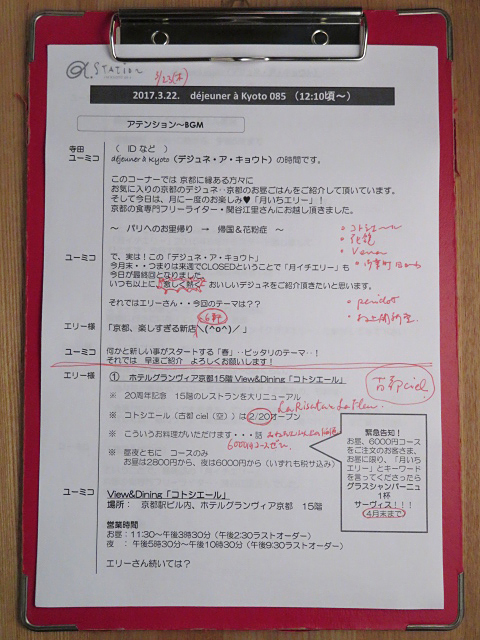 α STATION
3/23(木)
2017.3.22. déjeuner à Kyoto 085 (12:10頃~)
アテンション~BGM
寺田 ( IDなど )
ユーミコ déjeuner à Kyoto(デジュネ・ア・キョウト)の時間です。
このコーナーでは 京都に縁ある方々に
お気に入りの京都のデジュネ‥京都のお昼ごはんをご紹介して頂いています。
そして今日は、月に一度のお楽しみ♥「月いちエリー」!
京都の食専門フリーライター・関谷江里さんにお越し頂きました。
~ パリへのお里帰り → 帰国&花粉症 ~
・コトシエール
ユーミコ で、実は!この「デジュネ・ア・キョウト」
今月末・・つまりは来週でCLOSEDということで「月イチエリー」も
今日が最終回となりました。
いつも以上に激しく熱く おいしいデジュネをご紹介頂きたいと思います。
それではエリーさん・・今回のテーマは??
・peridot
6軒
エリー様 「京都、楽しすぎる新店\(^o^)/」
ユーミコ 何かと新しい事がスタートする「春」‥ピッタリのテーマ‥!
それでは 早速ご紹介 よろしくお願いします!
エリー様 ① ホテルグランヴィア京都15階 View&Dining「コトシエール」
古都ciel
※ 20周年記念 15階のレストランを大リニューアル
※ コトシエール(古都 ciel(空))は2/20オープン
※ こういうお料理がいただけます・・・話
6000円コース
※ 昼夜ともに コースのみ
お昼は2800円から、夜は6000円から(いずれも税サ込み)
緊急告知!
お昼、6000円コース
をご注文のお客さま、
お昼に限り、「月いち
エリー」とキーワード
を言ってくださったら
グラスシャンパーニュ
1杯
サーヴィス!!!
4月末まで
ユーミコ View&Dining「コトシエール」
場所: 京都駅ビル内、ホテルグランヴィア京都 15階
営業時間
お昼:11:30~午後3時30分(午後2:30ラストオーダー)
夜 : 午後5時30分~午後10時30分(午後9:30ラストオーダー)
エリーさん続いては?